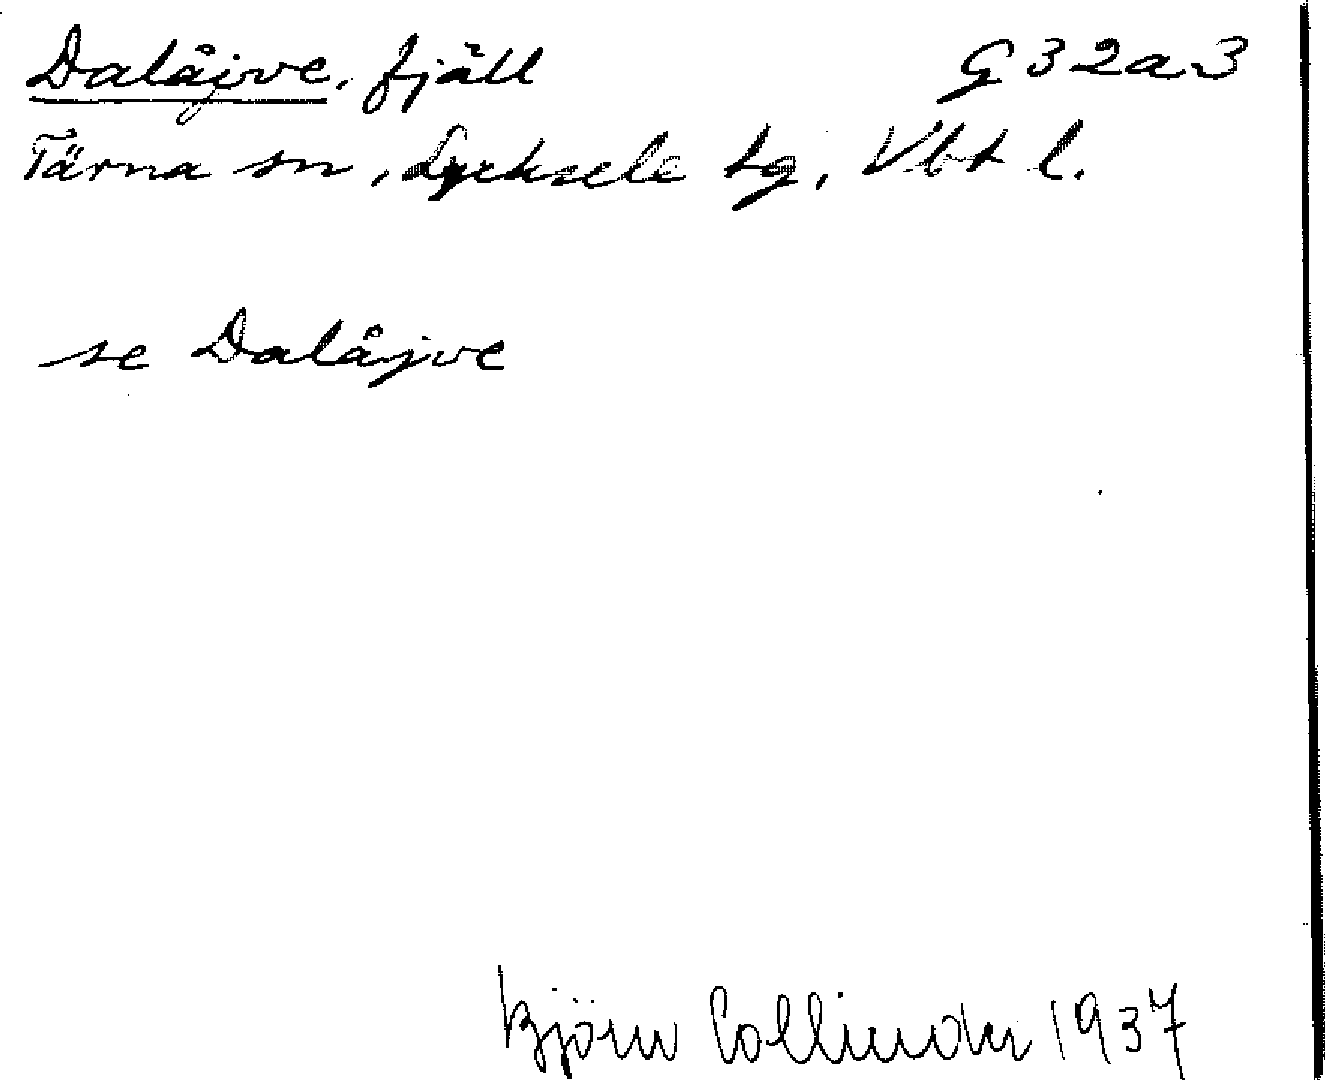 Dalåjve, fjäll G 32a3
Tärna sn, Lycksele lg, Vbt l.
se Dalåjve
Björn Collinder 1937